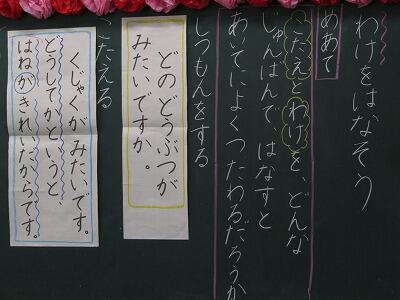 わけをはなそう
めあて
こたえとわけを、どんな
じゅんばんで、はなすと
あいてによくつたわるだろうか
しつもんをする
どのどうぶつが
みたいですか。
こたえる
くじゃくがみたいです。
どうしてかというと、
はねがきれいだからです。